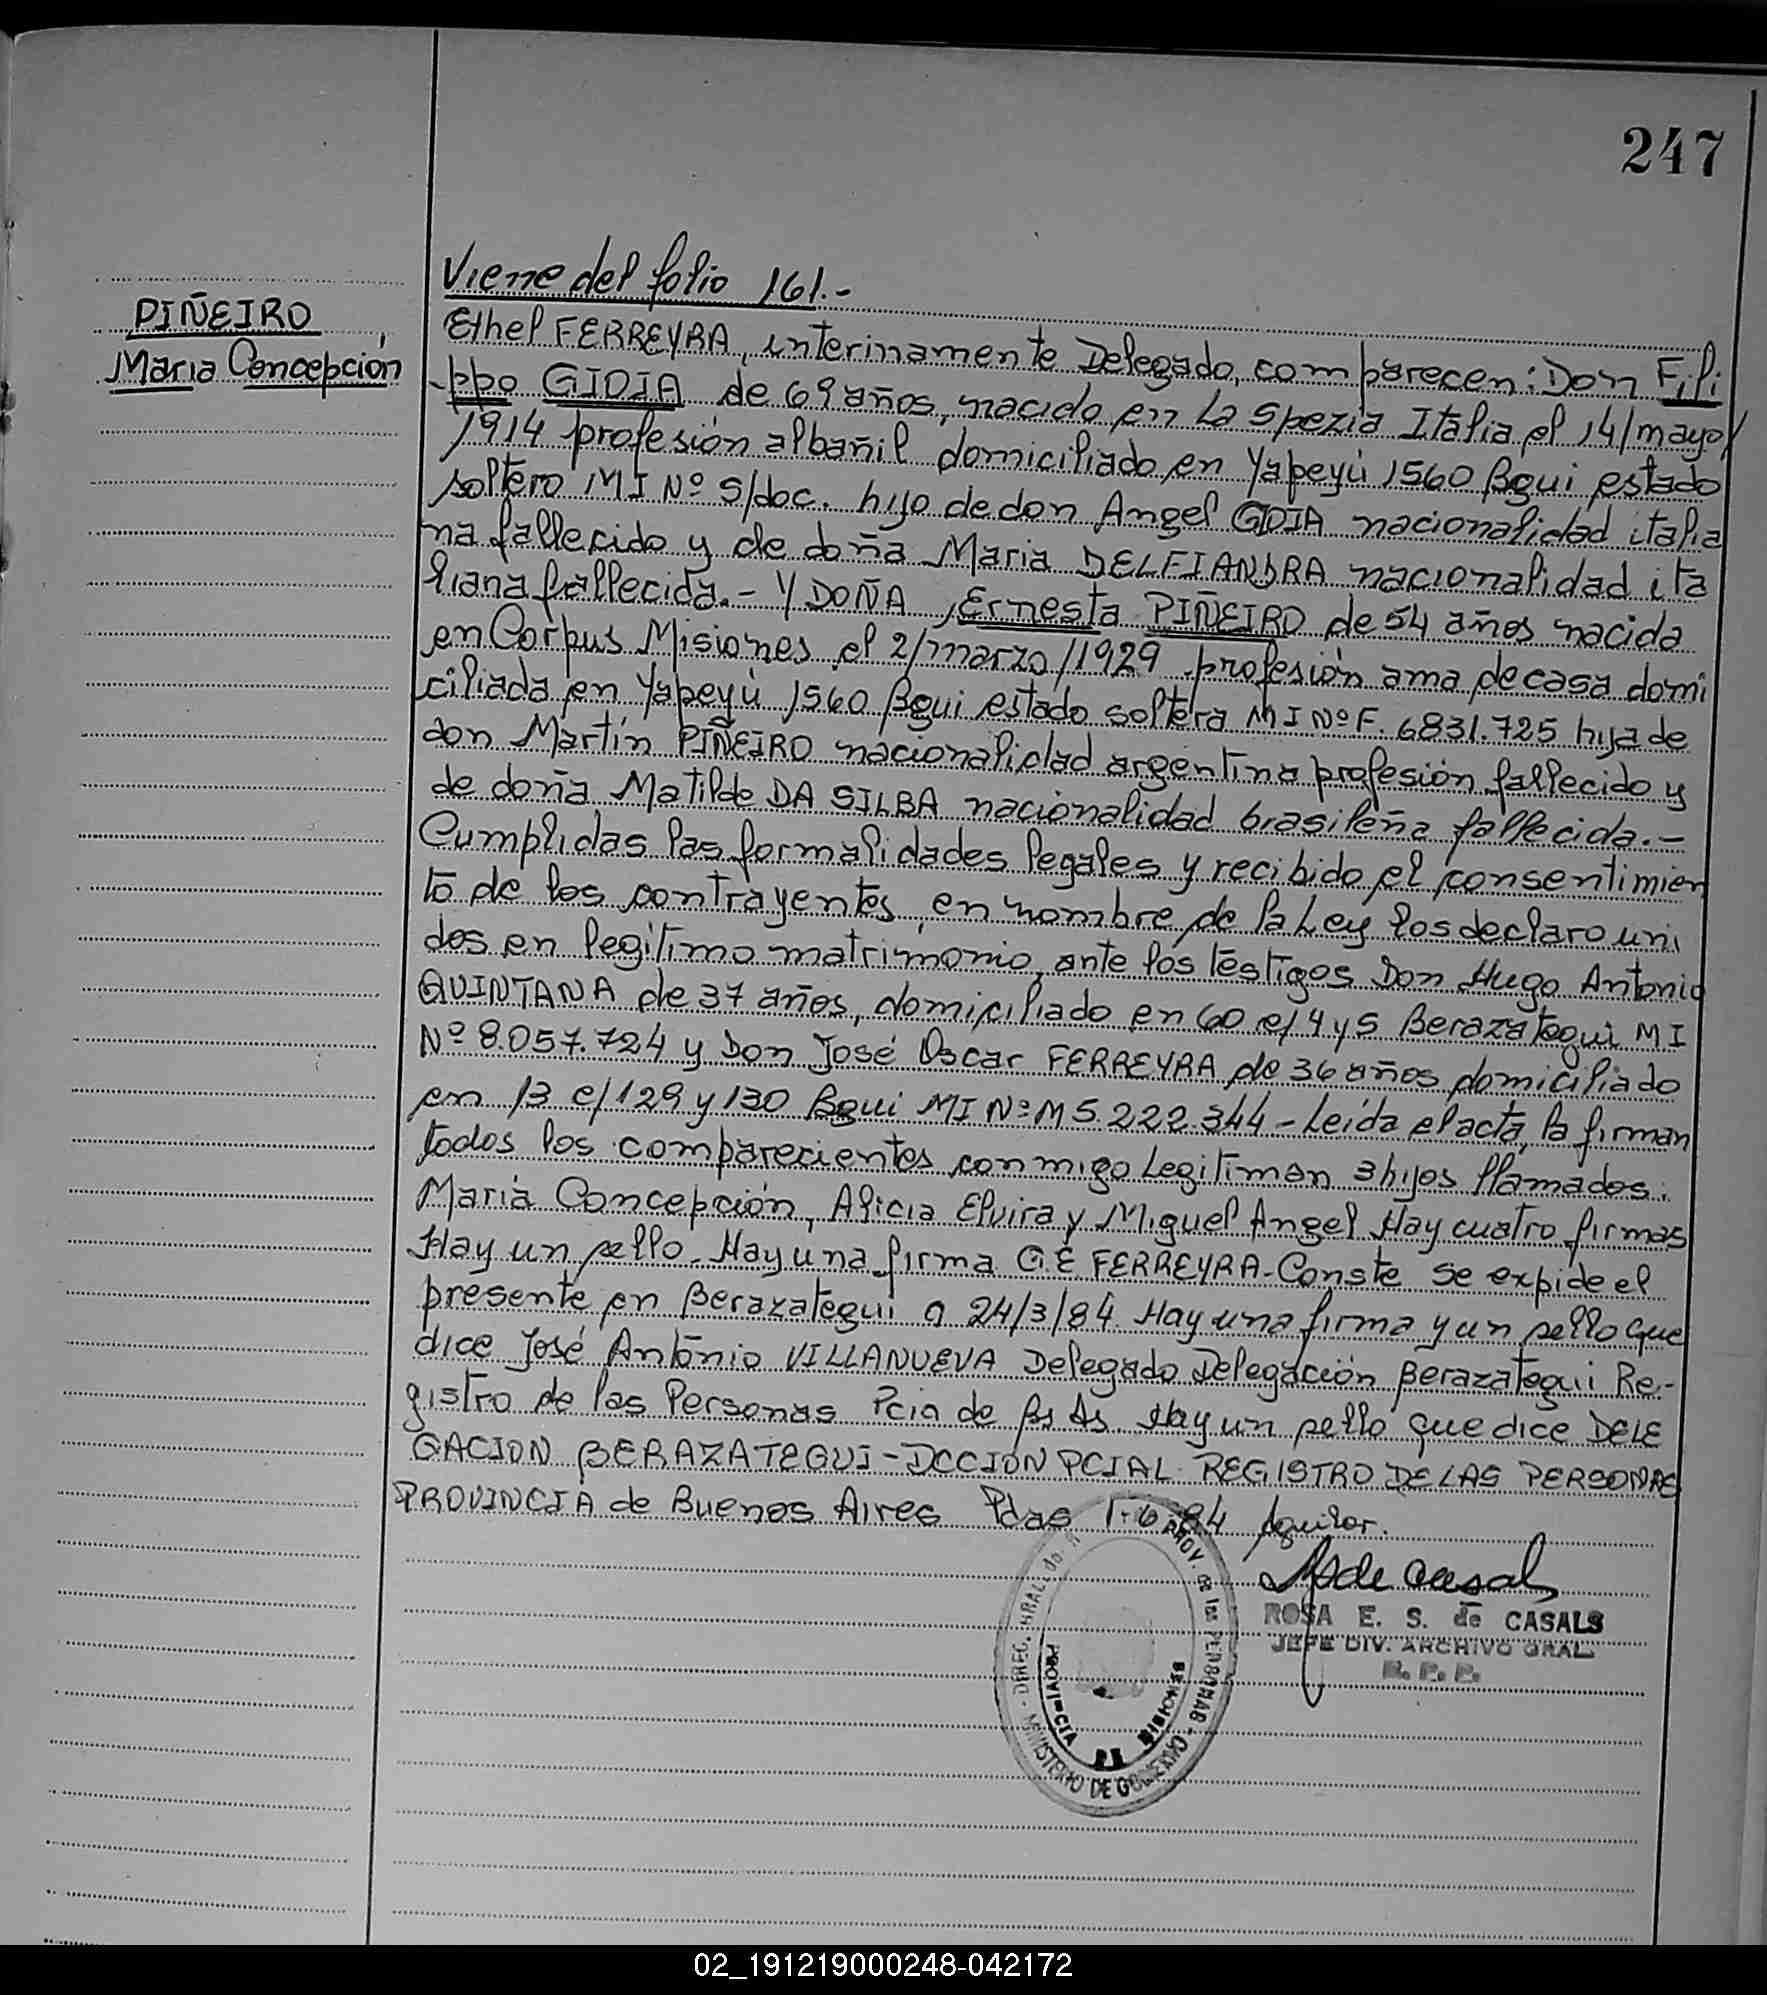 247
Viene del folio 161.-
PIÑEIRO
María Concepción
Ethel FERREYRA, interinamente Delegado, comparecen: Don Fili
-ppo GIOIA de 69 años, nacido en La Spezia Italia el 14/mayo/
1914 profesión albañil domiciliado en Yapeyú 1560 Bgui estado
soltero MI Nº S/doc. hijo de don Angel GIOIA nacionalidad italia
na fallecido y de doña Maria DELFIANDRA nacionalidad ita
liana fallecida.- Y DOÑA Ernesta PIÑEIRO de 54 años nacida
en Corpus Misiones el 2/marzo/1929 profesión ama de casa domi
ciliada en Yapeyú 1560 Bgui estado soltera MI Nº F. 6831.725 hija de
don Martín PIÑEIRO nacionalidad argentina profesión fallecido y
de doña Matilde DA SILBA nacionalidad brasileña fallecida.-
Cumplidas las formalidades legales y recibido el consentimien
to de los contrayentes, en nombre de la Ley los declaro uni
dos en legítimo matrimonio, ante los testigos Don Hugo Antonio
QUINTANA de 37 años, domiciliado en 60 e/4 y 5 Berazategui MI
Nº 8.057.724 y Don José Oscar FERREYRA de 36 años domiciliado
en 13 e/129 y 130 Bgui MI Nº M 5.222.344 - Leída el acta, la firman
todos los comparecientes conmigo Legitiman 3 hijos llamados:
María Concepción, Alicia Elvira y Miguel Angel Hay cuatro firmas
Hay un sello. Hay una firma G.E FERREYRA - Conste se expide el
presente en Berazategui a 24/3/84. Hay una firma y un sello que
dice José Antonio VILLANUEVA Delegado Delegación Berazategui Re-
gistro de las Personas Pcia de Bs As. Hay un sello que dice DELE
GACION BERAZATEGUI - DCCION PCIAL REGISTRO DE LAS PERSONAS
PROVINCIA de Buenos Aires Pdas 1-6-84 Aguilar.
ROSA E. S. de CASALS
JEFE DIV. ARCHIVO GRAL.
R. P. P.
PROV. de las PERSONAS - MINISTERIO DE GOBIERNO - DIREC. GRAL. do
PROVINCIA DE MISIONES
02_191219000248-042172